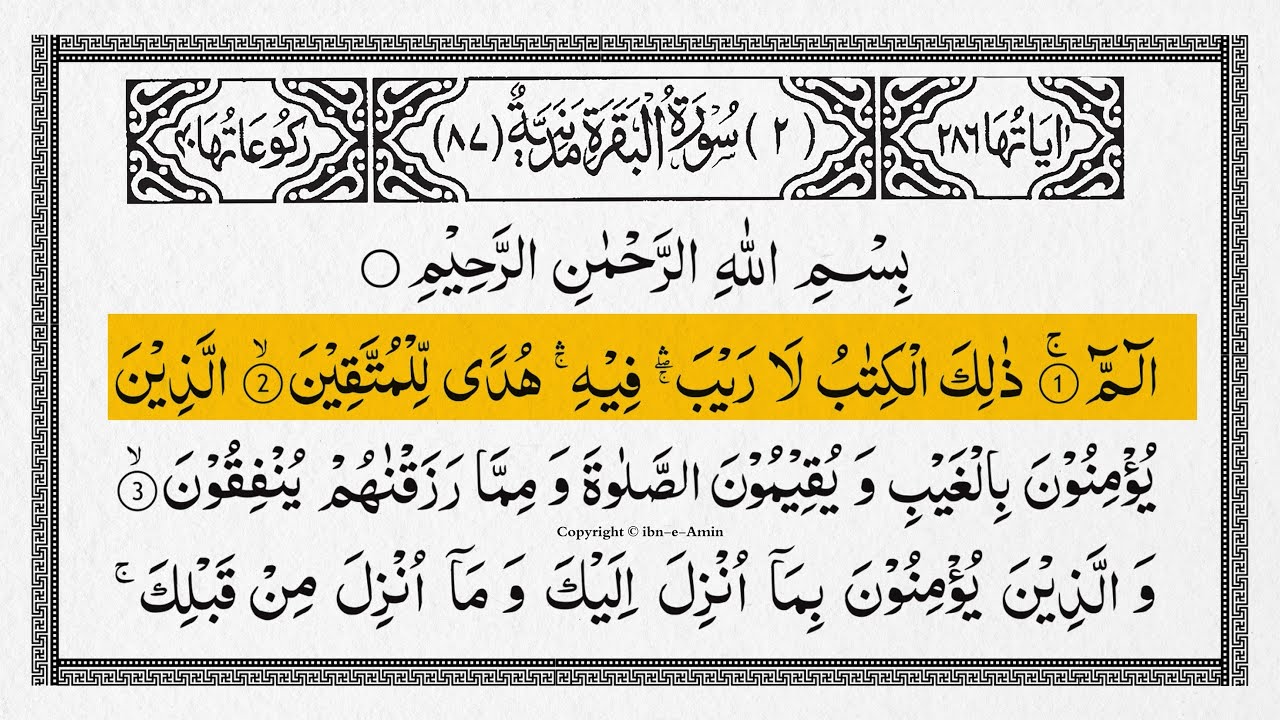 اٰيَاتُهَا ٢٨٦ (٢) سُوْرَةُ الْبَقَرَةِ مَدَنِيَّةٌ (٨٧) رُكُوْعَاتُهَا ٤٠
بِسْمِ اللّٰهِ الرَّحْمٰنِ الرَّحِيْمِ ○
الٓـمّٓ ۚ① ذٰلِكَ الْكِتٰبُ لَا رَيْبَ ۛۖۚ فِيْهِ ۛۚ هُدًى لِّلْمُتَّقِيْنَ ۙ② الَّذِيْنَ
يُؤْمِنُوْنَ بِالْغَيْبِ وَ يُقِيْمُوْنَ الصَّلٰوةَ وَ مِمَّا رَزَقْنٰهُمْ يُنْفِقُوْنَ ۙ③
Copyright © ibn-e-Amin
وَ الَّذِيْنَ يُؤْمِنُوْنَ بِمَاۤ اُنْزِلَ اِلَيْكَ وَ مَاۤ اُنْزِلَ مِنْ قَبْلِكَ ۚ